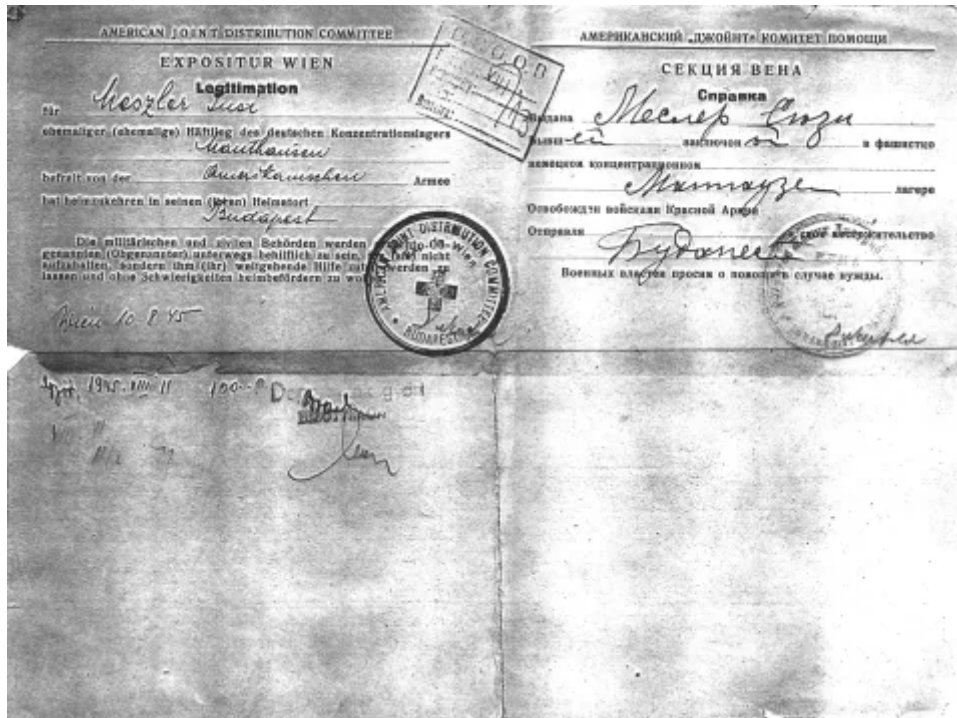 AMERICAN JOINT DISTRIBUTION COMMITTEE
EXPOSITUR WIEN
Legitimation
für Meszler Susi
ehemaliger (ehemalige) Häftlieg des deutschen Konzentrationslagers
Mauthausen
befreit von der Amerikanischen Armee
hat heimzukehren in seinen (ihren) Heimatort
Budapest
Die militärischen und zivilen Behörden werden
genannten (Obgenannter) unterwegs behilflich zu sein, nicht
aufzuhalten, sondern ihm (ihr) weitgehende Hilfe werden zu
lassen und ohne Schwierigkeiten heimbefördern zu
Wien 10 8 45
AMERICAN JOINT DISTRIBUTION COMMITTEE
BUDAPEST
АМЕРИКАНСКИЙ „ДЖОЙНТ« КОМИТЕТ ПОМОЩИ
СЕКЦИЯ ВЕНА
Справка
Выдана Меслер Сюзи
заключен в фашистко
немецком концентрационном
Маттаузен лагере
Освобождти войсками Красной Армие
Отправля
Будапешт
Военных властей просия о помощи в случае нужды.
1945. VIII 11 100